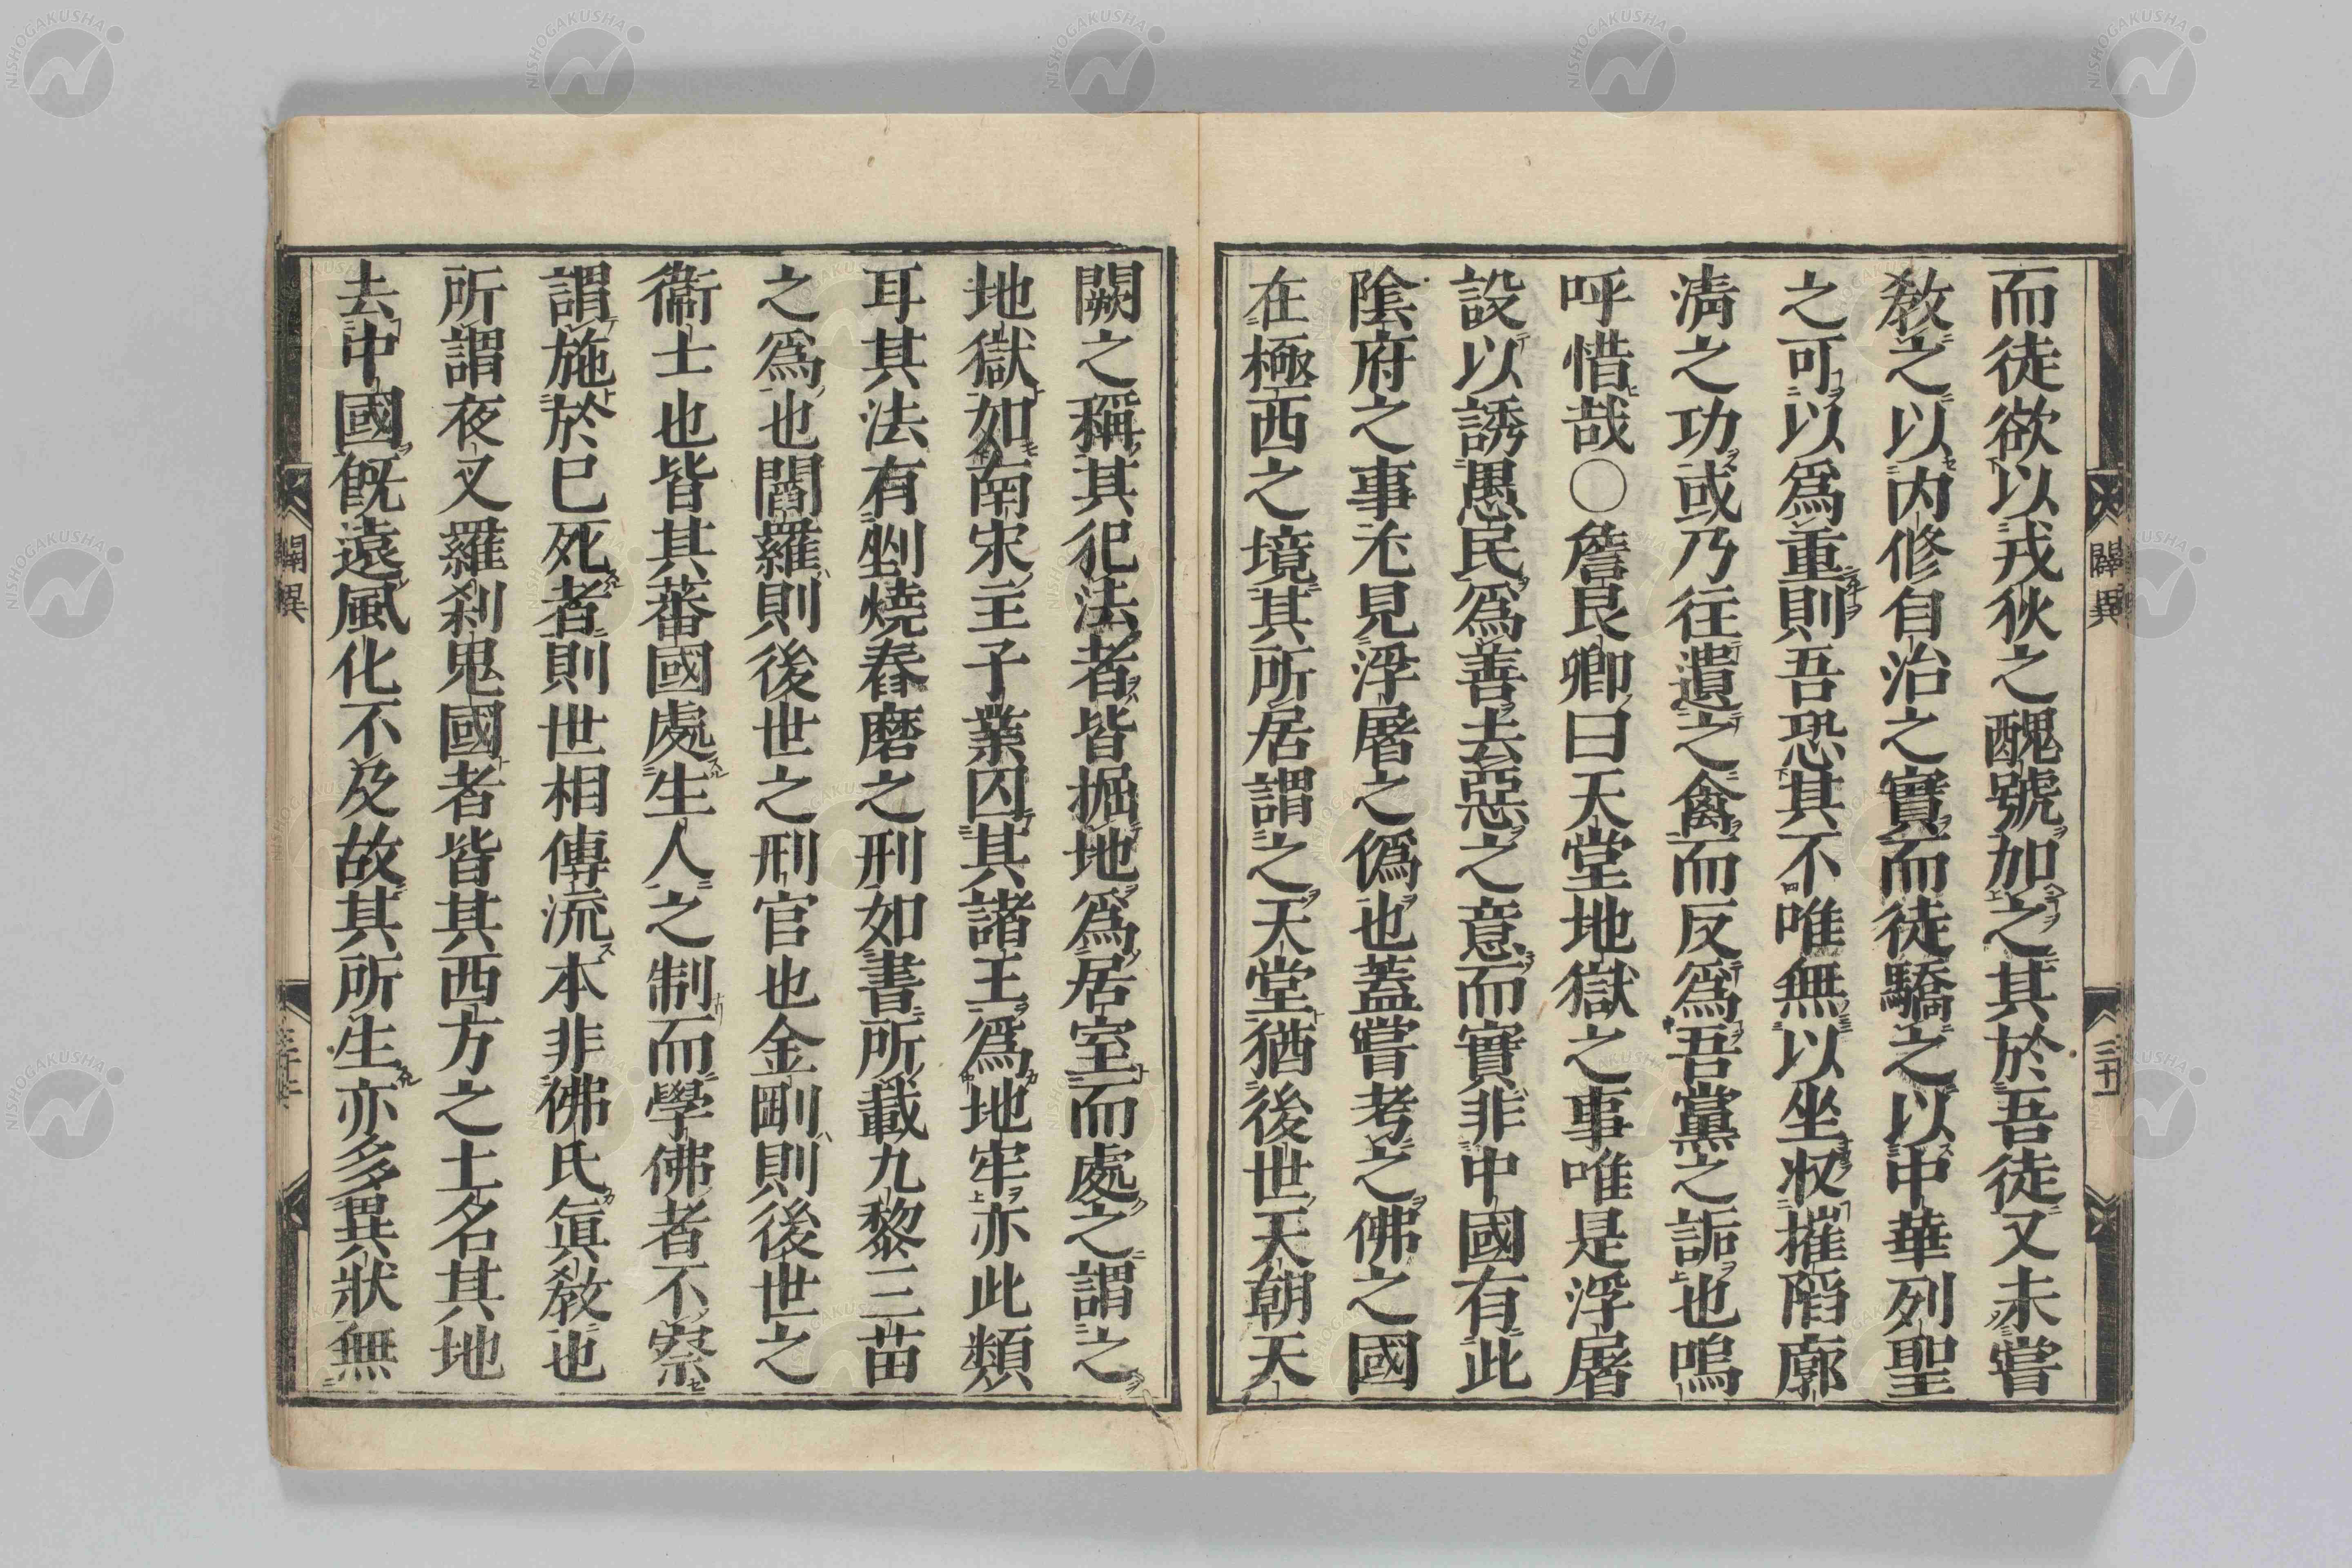 而徒欲以戎狄之醜號加之其於吾徒又未嘗
教之以内修自治之實而徒驕之以中華列聖
之可以爲重則吾恐其不唯無以坐收摧陷廓
淸之功或乃往遺之禽而反爲吾黨之詬也嗚
呼惜哉○詹艮卿曰天堂地獄之事唯是浮屠
設以誘愚民爲善去惡之意而實非中國有此
陰府之事尣見浮屠之僞也蓋嘗考之佛之國
在極西之境其所居謂之天堂猶後世天朝天
闕之稱其犯法者皆掘地爲居室而處之謂之
地獄如南宋主子業囚其諸王爲地牢亦此類
耳其法有剉燒舂磨之刑如書所載九黎三苗
之爲也閻羅則後世之刑官也金剛則後世之
衞士也皆其蕃國處生人之制而學佛者不察
謂施於已死者則世相傳流本非佛氏眞教也
所謂夜叉羅刹鬼國者皆其西方之土名其地
去中國旣遠風化不及故其所生亦多異狀無
闢異
三十
闢異
NISHOGAKUSHA